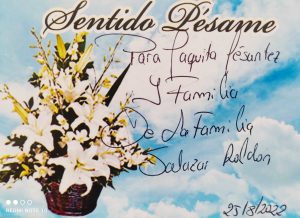 Sentido Pésame
Para Paquita Pésantez
Y Familia
De La Familia
Salazar Roldon
25/8/2022
REDMI NOTE 10